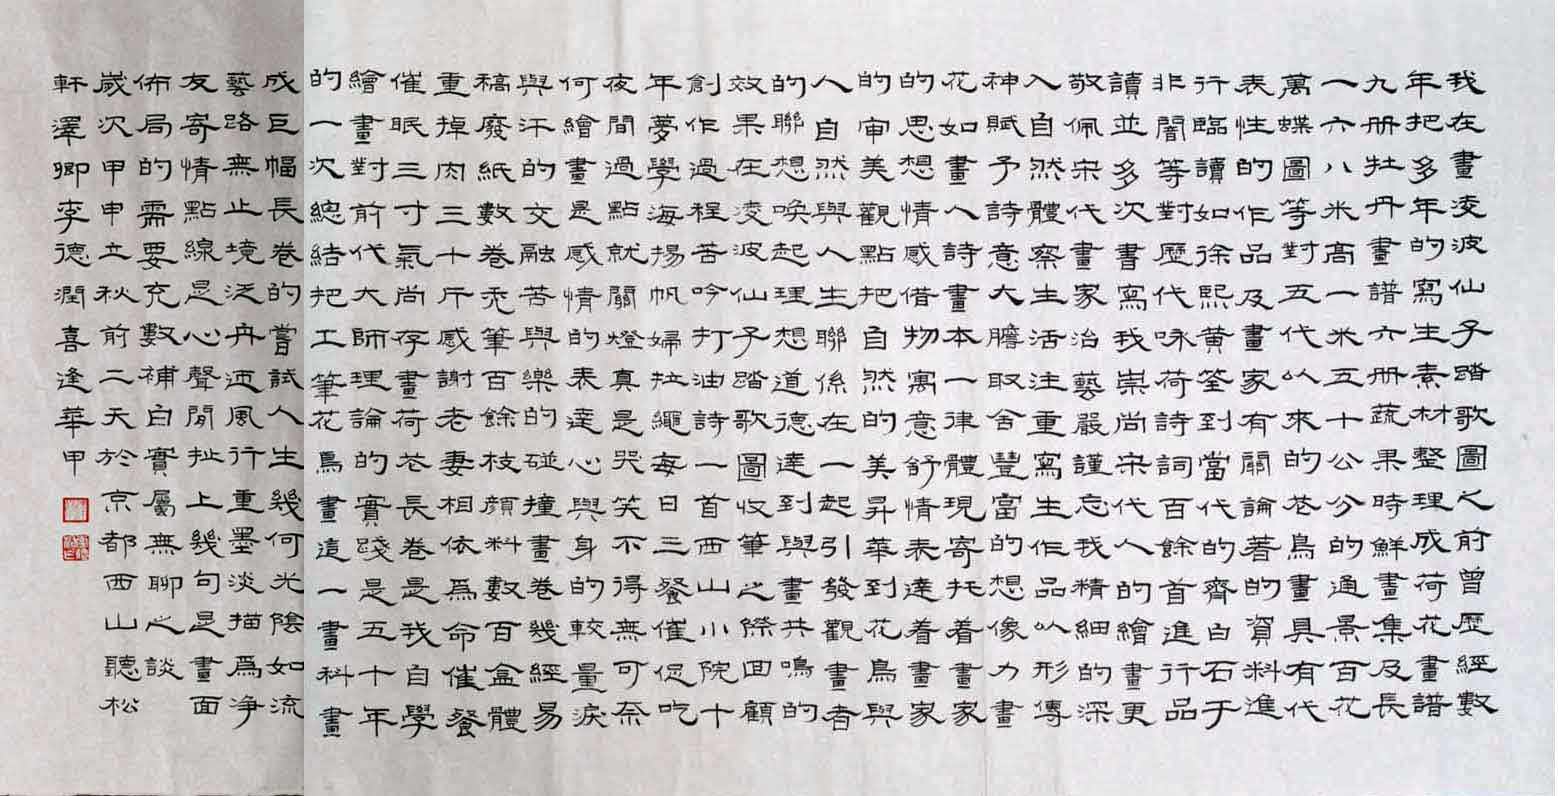 我在畫凌波仙子踏歌圖之前曾歷經數
年把多年的寫生素材整理成荷花畫譜
九册牡丹畫譜六册蔬果時鮮畫集及長
一六八米高一米五十公分的通景百花
萬蝶圖等對五代以來的花鳥畫具有代
表性的作品及畫家有關論著的資料進
行臨讀如徐熙黃筌到當代的齊白石于
非闇等對歷代咏荷詩詞百餘首進行品
讀並多次書寫我崇尚宋代人的繪畫更
敬佩宋代畫家治藝嚴謹忘我精細的深
入自然體察生活注重寫生作品以形傳
神賦予詩意大膽取舍豐富的想像力畫
花如畫人詩畫本一律體現寄托着畫家
的思想情感借物寓意舒情表達着畫家
的审美觀點把自然的美昇華到花鳥與
人自然與人生聯係在一起引發觀畫者
的聯想喚起理想道德達到與畫共鳴的
效果在凌波仙子踏歌圖收筆之際回顧
創作過程苦吟打油詩一首西山小院十
年夢學海揚帆婦拉繩每日三餐催促吃
夜間過點就關燈真是哭笑不得無可奈
何繪畫是感情的表達心與身的較量淚
與汗的交融苦與樂的碰撞畫卷幾經易
稿廢紙數卷禿筆百餘枝顏料數百盒體
重掉肉三十斤感謝老妻相依爲命催餐
催眠三寸氣尚存畫荷花長卷是我自學
繪畫對前代大師理論的實踐是五十年
的一次總結把工筆花鳥畫這一畫科畫
成巨幅長卷的嘗試人生幾何光陰如流
藝路無止境泛舟迊風行重墨淡描爲净
友寄情點線是心聲閒扯上幾句是畫面
佈局的需要充數補白實屬無聊之談
歲次甲申立秋前二天於京都西山聽松
軒澤卿李德潤喜逢華甲